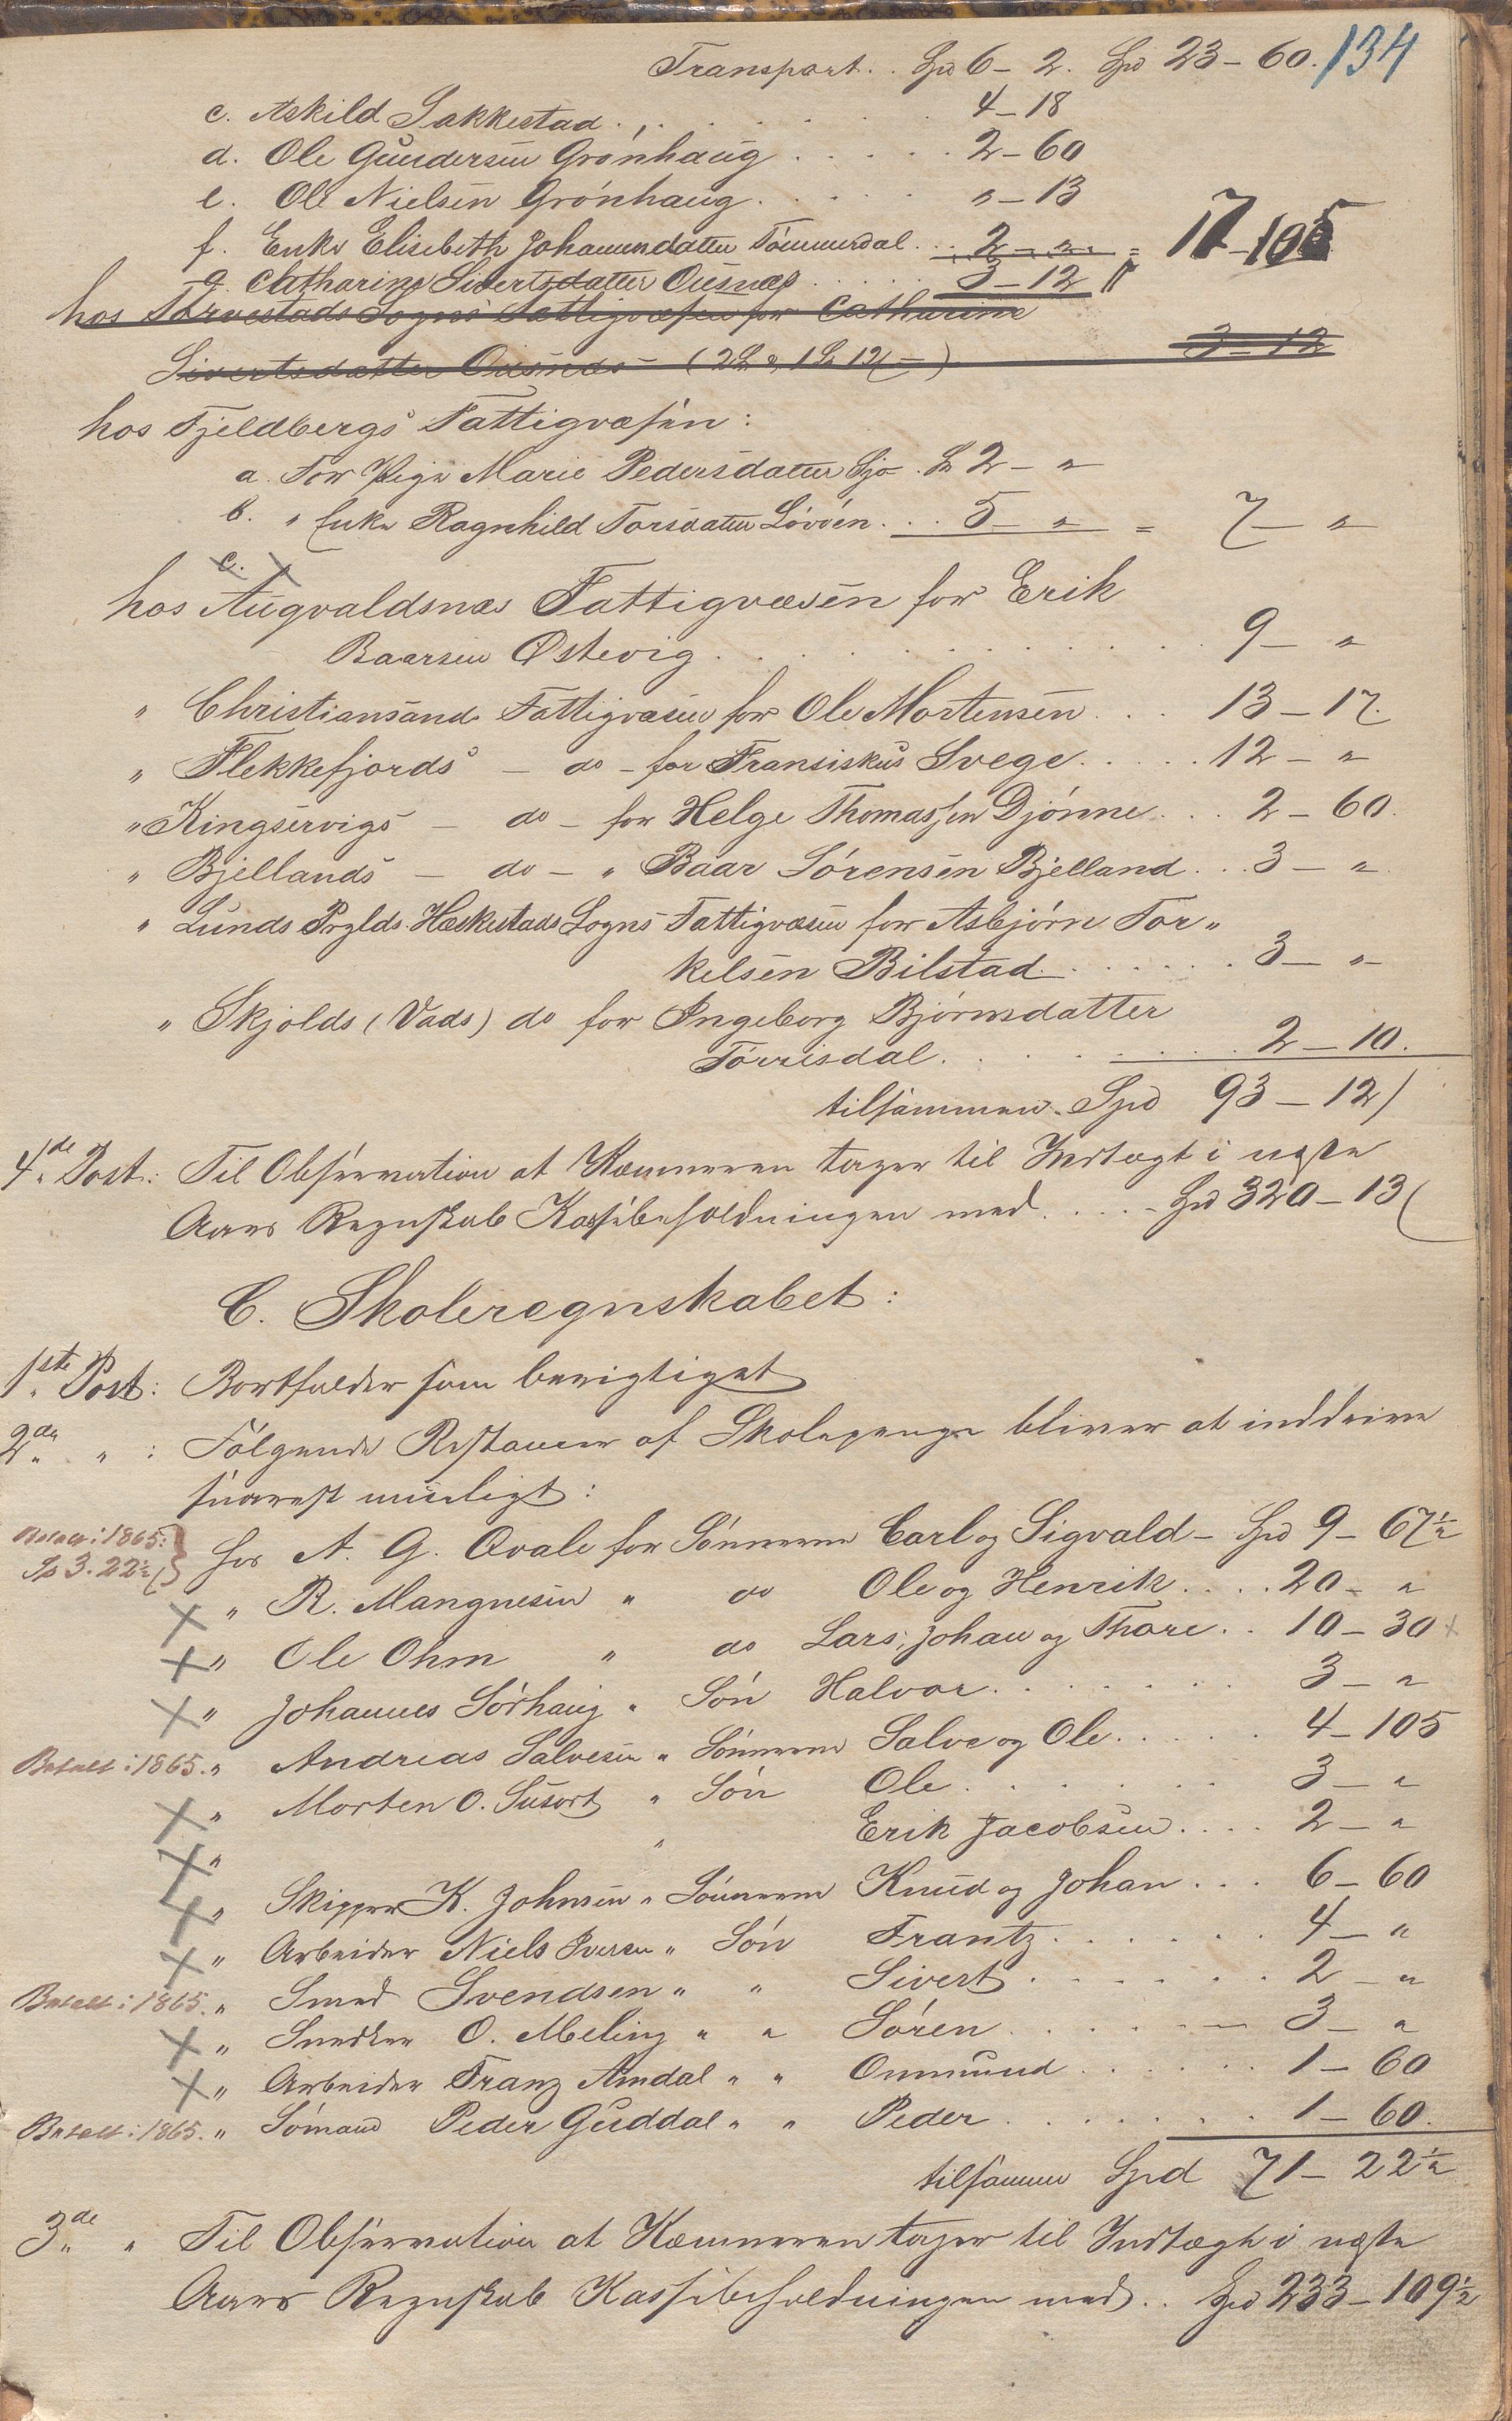 134
Transport . . Spd 6 – 2. Spd 23 – 60.
c. Askild Sakkestad . . . . . . . 4 – 18
d. Ole Gundersen Grønhaug . . . . . 2 – 60
e. Ole Nielsen Grønhaug . . . . . " – 13
f. Enke Elisebeth Johannesdatter Tømmerdal . . . 2 – " = 17 – 105
g. Catharine Sivertsdatter Ousnæs . . . . . 3 – 12 "
hos Torvestads Sogns Fattigvæsen for Catharine
Sivertsdatter Ousnæs – (2 & 1 12 –) 3 – 12
hos Fjeldbergs Fattigvæsen:
a. For Pige Marie Pedersdatter Sjo . 2 – "
b. " Enke Ragnhild Torsdatter Løvøen . . . 5 – " = 7 – "
c.
hos Augvaldsnæs Fattigvæsen for Erik
Baarsen Østevig . . . . . . . . . . . 9 – "
" Christiansands Fattigvæsen for Ole Mortensen . . . 13 – 17.
" Flekkefjords – do – for Fransiskus Svege . . . . . 12 – "
" Kingservigs – do – for Helge Thomassen Djønne . . . 2 – 60.
" Bjellands – do – " Baar Sørensen Bjelland . . . 3 – ".
" Lunds Prglds. Heskestads Sogns Fattigvæsen for Asbjørn Tor "
kelsen Bilstad . . . . . . . 3 – "
" Skjolds (Vads) do for Ingeborg Bjørnsdatter
Tørrisdal . . . . . . . . 2 – 10.
tilsammen. Spd 93 – 12 /
4de Post: Til Observation at Kæmneren tager til Indtægt i næste
Aars Regnskab Kassebeholdningen med . . . . . Spd 320 – 13 (
C. Skoleregnskabet:
1ste Post: Bortfalder som berigtiget
2den " : Følgende Restancer af Skolepenge bliver at inddrive
snarest muligt:
Betalt i 1865: Sp 3. 22½ } hos A. G. Qvale for Sønnerne Carl og Sigvald – Spd 9 – 67½
X " R. Mangnesen " do Ole og Henrik . . . . 20 – "
X " Ole Ohm " do Lars, Johan og Thore . . 10 – 30 x
X " Johannes Sørhaug " Søn Halvor . . . . . . . 3 – "
Betalt i 1865. " Andreas Salvesen " Sønnerne Salve og Ole . . . . . 4 – 105
X " Morten O. Susort " Søn Ole . . . . . . . 3 – "
X " " Erik Jacobsen . . . . 2 – "
X " Skipper K. Johnsen " Sønnerne Knud og Johan . . . 6 – 60
X " Arbeider Niels Iversen " Søn Frantz . . . . . . 4 – "
Betalt i 1865. " Smed Svendsen " " Sivert . . . . . . . 2 – "
X " Snedker O. Meling " " Søren . . . . . . – 3 – "
X " Arbeider Franz Amdal " " Ommund . . . . . . 1 – 60
Betalt i 1865. " Sømand Peder Guddal " " Peder . . . . . . . . 1 – 60.
tilsammen Spd 71 – 22½
3de " Til Observation at Kæmneren tager til Indtægt i næste
Aars Regnskab Kassebeholdningen med . . Spd 233 – 109½